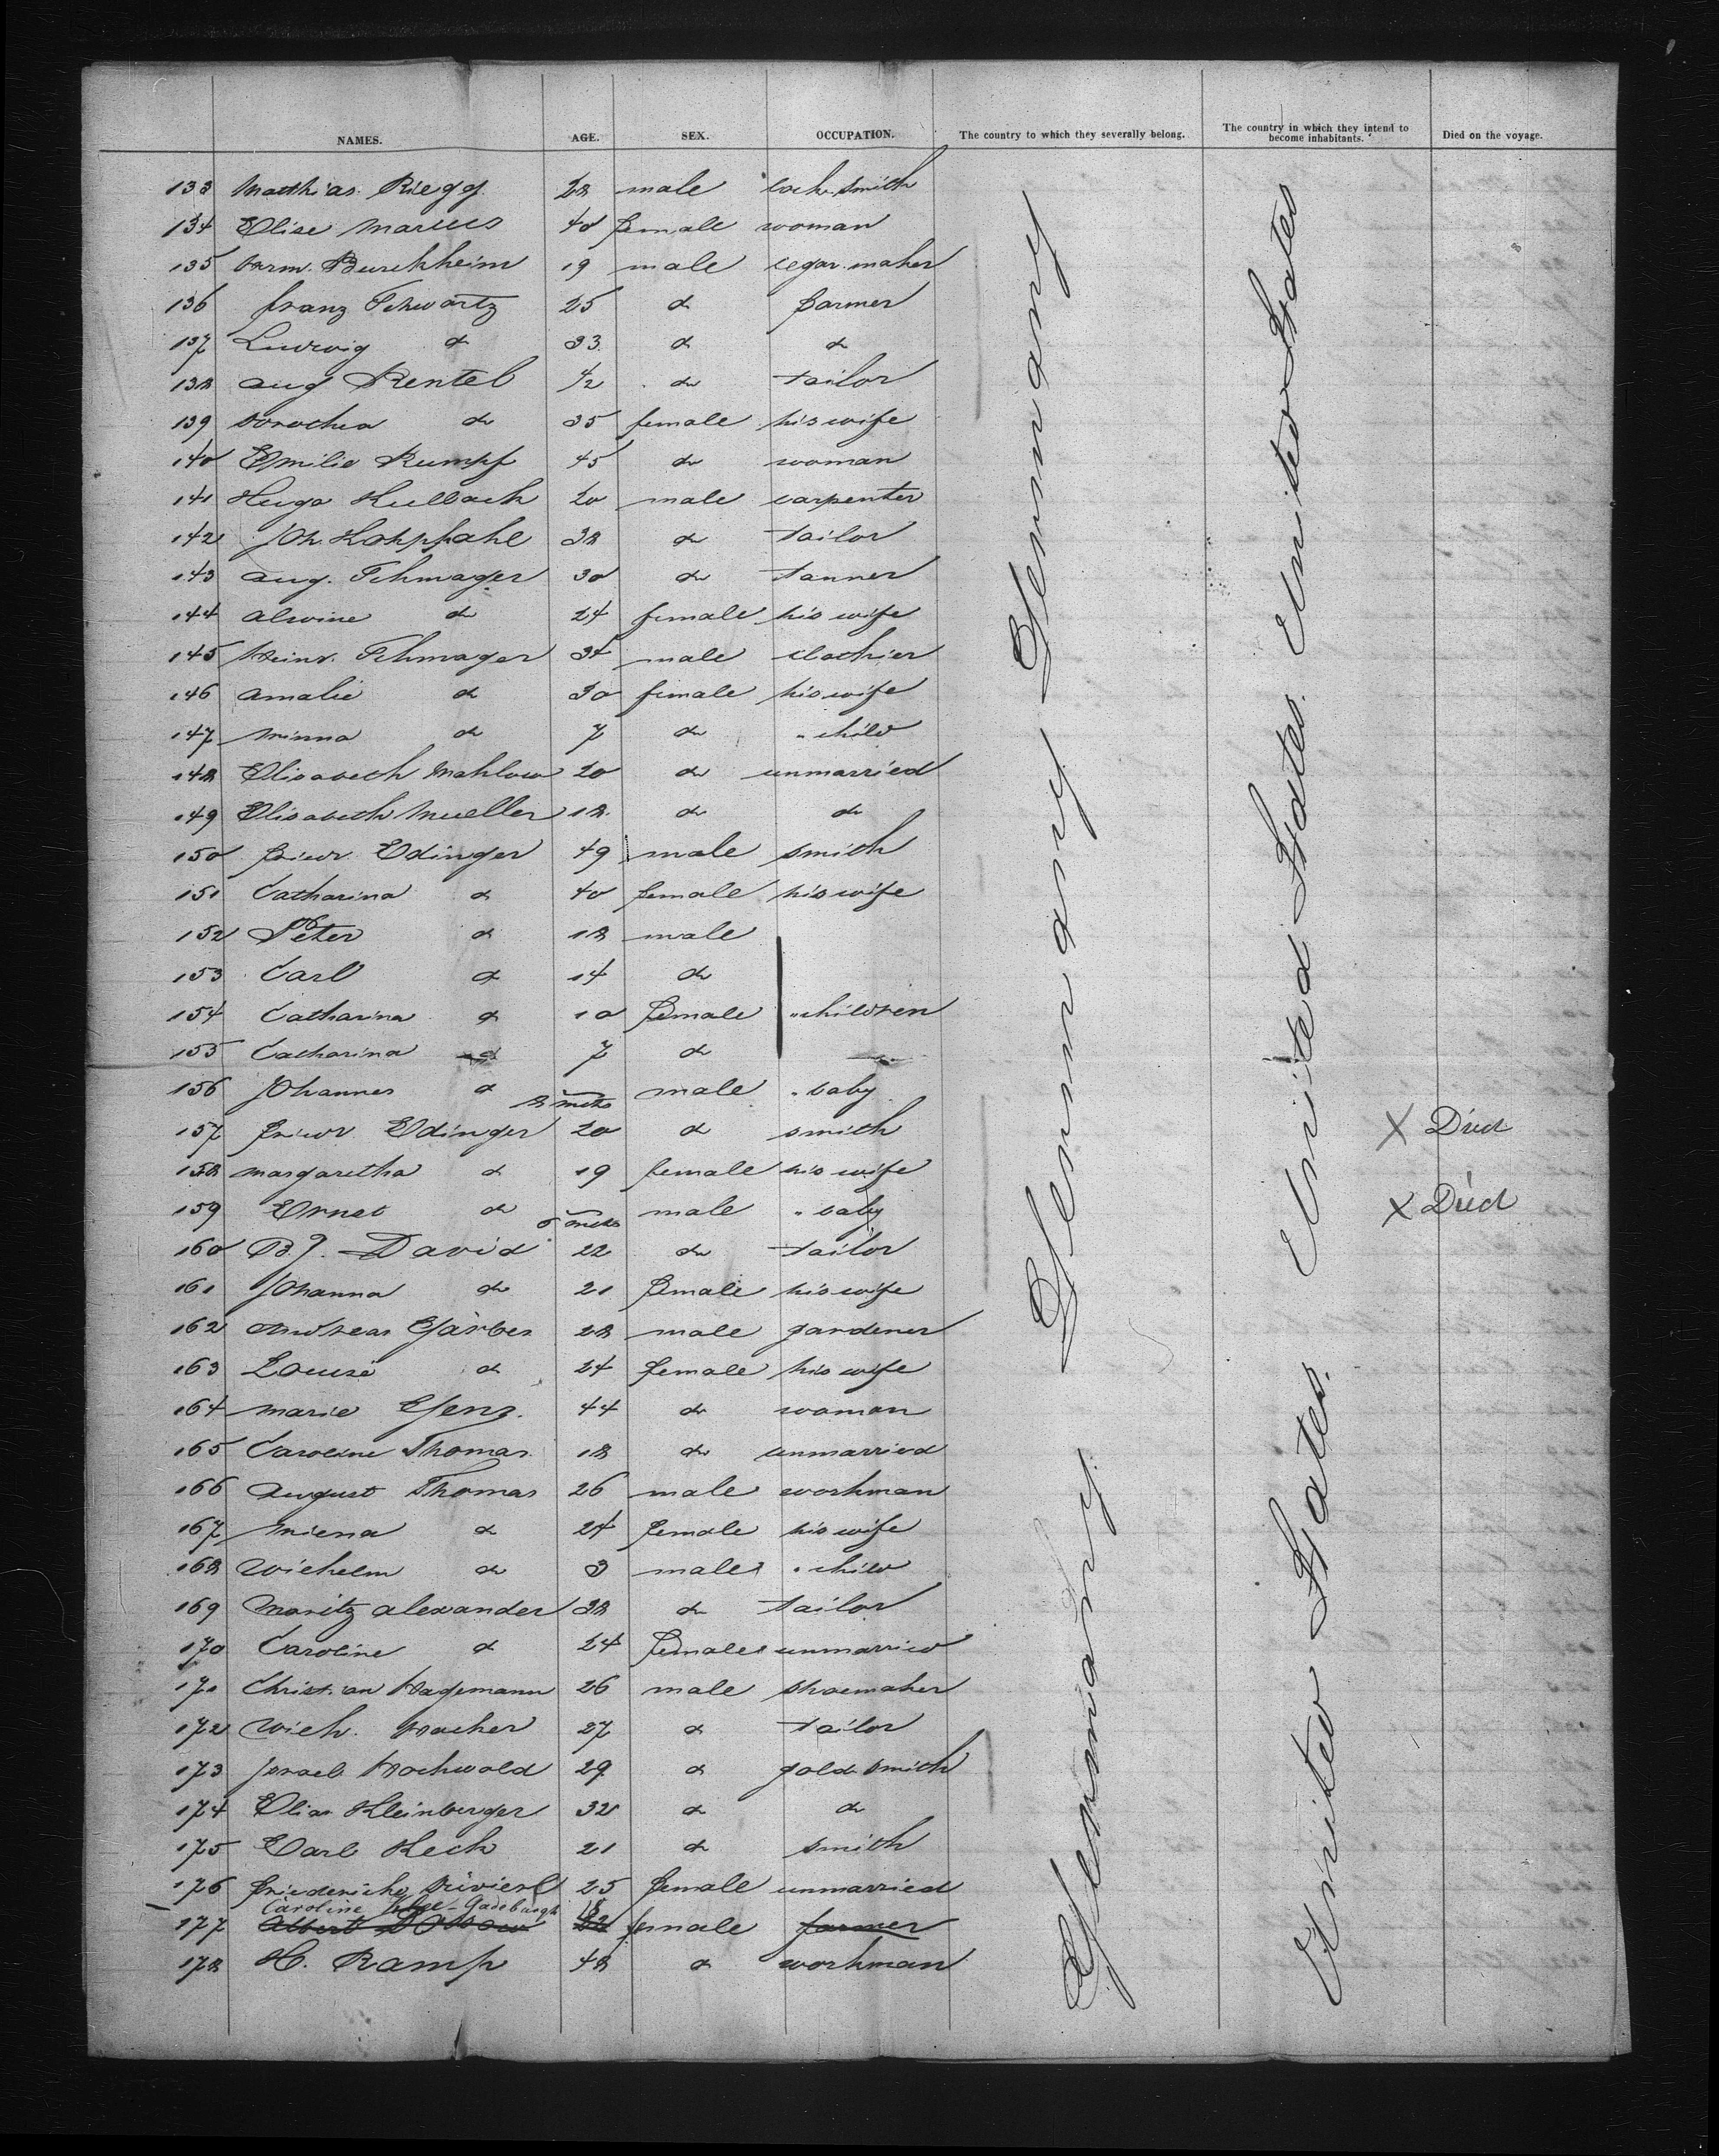 NAMES. AGE. SEX. OCCUPATION. The country to which they severally belong. The country in which they intend to become inhabitants. Died on the voyage.
133 Matthias Riegg 28 male lock smith
134 Elise Marcus 40 female woman
135 Herm. Burckheim 19 male segar maker
136 Franz Schwartz 25 do farmer
137 Ludwig do 33 do do
138 Aug Rentel 42 do tailor
139 Dorothea do 35 female his wife
140 Emilie Rumpf 45 do woman
141 Hugo Kullack 20 male carpenter
142 Joh. Hohpfahl 38 do tailor
143 Aug. Schmager 30 do tanner
144 Alwine do 24 female his wife
145 Heinr. Schmager 34 male clothier
146 Amalie do 30 female his wife
147 Minna do 7 do " child
148 Elisabeth Mahlow 20 do unmarried
149 Elisabeth Mueller 18 do do
150 Friedr. Edinger 49 male smith
151 Catharina do 40 female his wife
152 Peter do 18 male
153 Carl do 14 do
154 Catharina do 10 female " children
155 Catharina do 7 do
156 Johannes do 8 mths male " baby
157 Friedr Edinger 20 do smith X Died
158 Margaretha do 19 female his wife
159 Ernst do 6 mths male " baby X Died
160 B. J. David 22 do tailor
161 Johanna do 21 female his wife
162 Andreas Gärber 28 male gardener
163 Louise do 24 female his wife
164 Marie Genz. 44 do woman
165 Caroline Thomas 18 do unmarried
166 August Thomas 26 male workman
167 Miena do 24 female his wife
168 Wilhelm do 3 male " child
169 Moritz Alexander 38 do tailor
170 Caroline do 24 female unmarried
171 Christian Hagemann 26 male shoemaker
172 Wilh. Hacker 27 do tailor
173 Israel Hochwald 29 do gold smith
174 Elias Kleinberger 32 do do
175 Carl Keck 21 do smith
176 Friedericke 25 female unmarried
Caroline Gadebusgh 18
177 Albert female farmer
178 H. Ramp 48 do workman
Germany Germany Germany Germany
United States United States United States